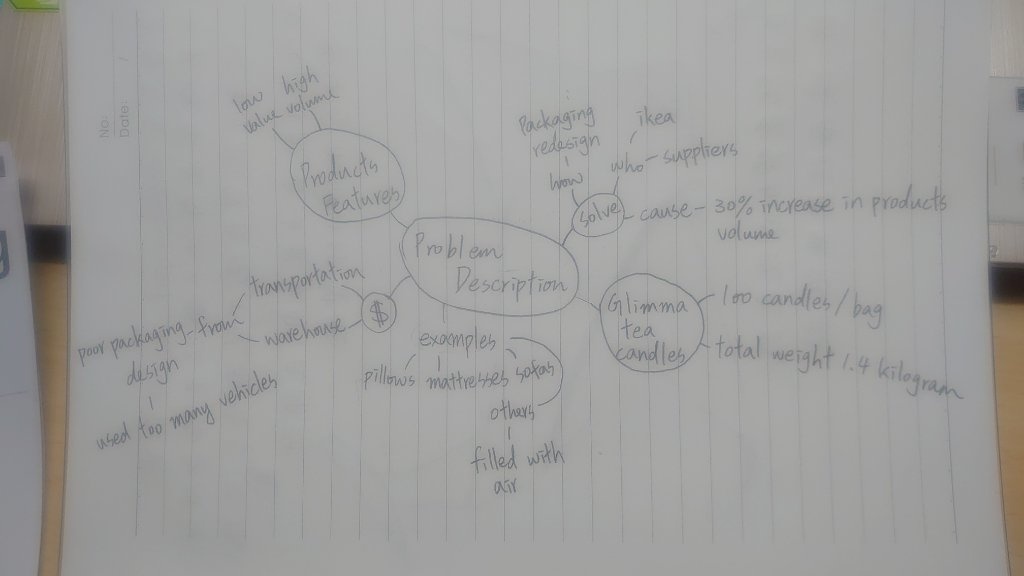 No:
Date:
low high
value volume
Products
Features
Problem
Description
Packaging
redesign
how
ikea
who - suppliers
solve
cause - 30% increase in products
volume
Glimma
tea
candles
100 candles / bag
total weight 1.4 kilogram
$
transportation
warehouse
poor packaging - from
design
used too many vehicles
examples
pillows mattresses sofas
others
filled with
air